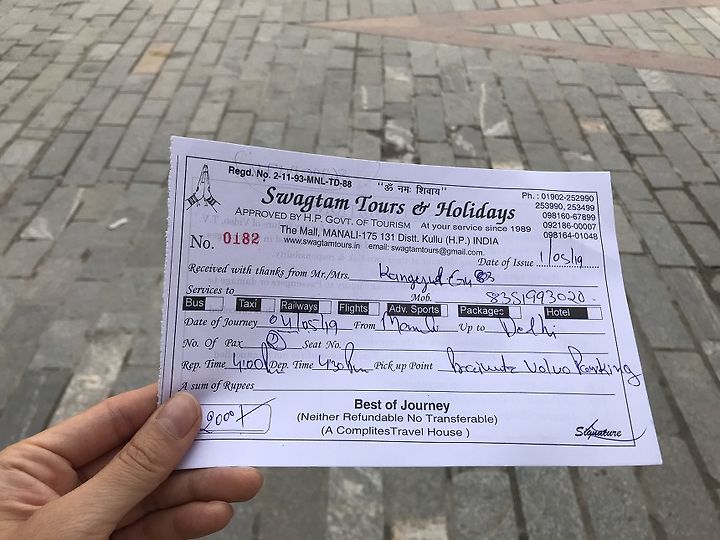 Regd. No. 2-11-93-MNL-TD-88
"ॐ नमः शिवाय"
Ph. : 01902-252990
253990, 253499
098160-67899
092186-00007
098164-01048
Swagtam Tours & Holidays
APPROVED BY H.P. GOVT. OF TOURISM At your service since 1989
The Mall, MANALI-175 131 Distt. Kullu (H.P.) INDIA
www.swagtamtours.in email: swagtamtours@gmail.com
No. 0182
Date of Issue 1/05/19
Received with thanks from Mr./Mrs.
Services to Mob. 8351993020
Bus Taxi Railways Flights Adv. Sports Packages Hotel
Date of Journey 04/05/19 From Manali Up to Delhi
No. Of Pax 2 Seat No.
Rep. Time 4:00 Dep. Time 4:30 Pick up Point Volvo Parking
A sum of Rupees
2000
Best of Journey
(Neither Refundable No Transferable)
(A ComplitesTravel House )
Signature